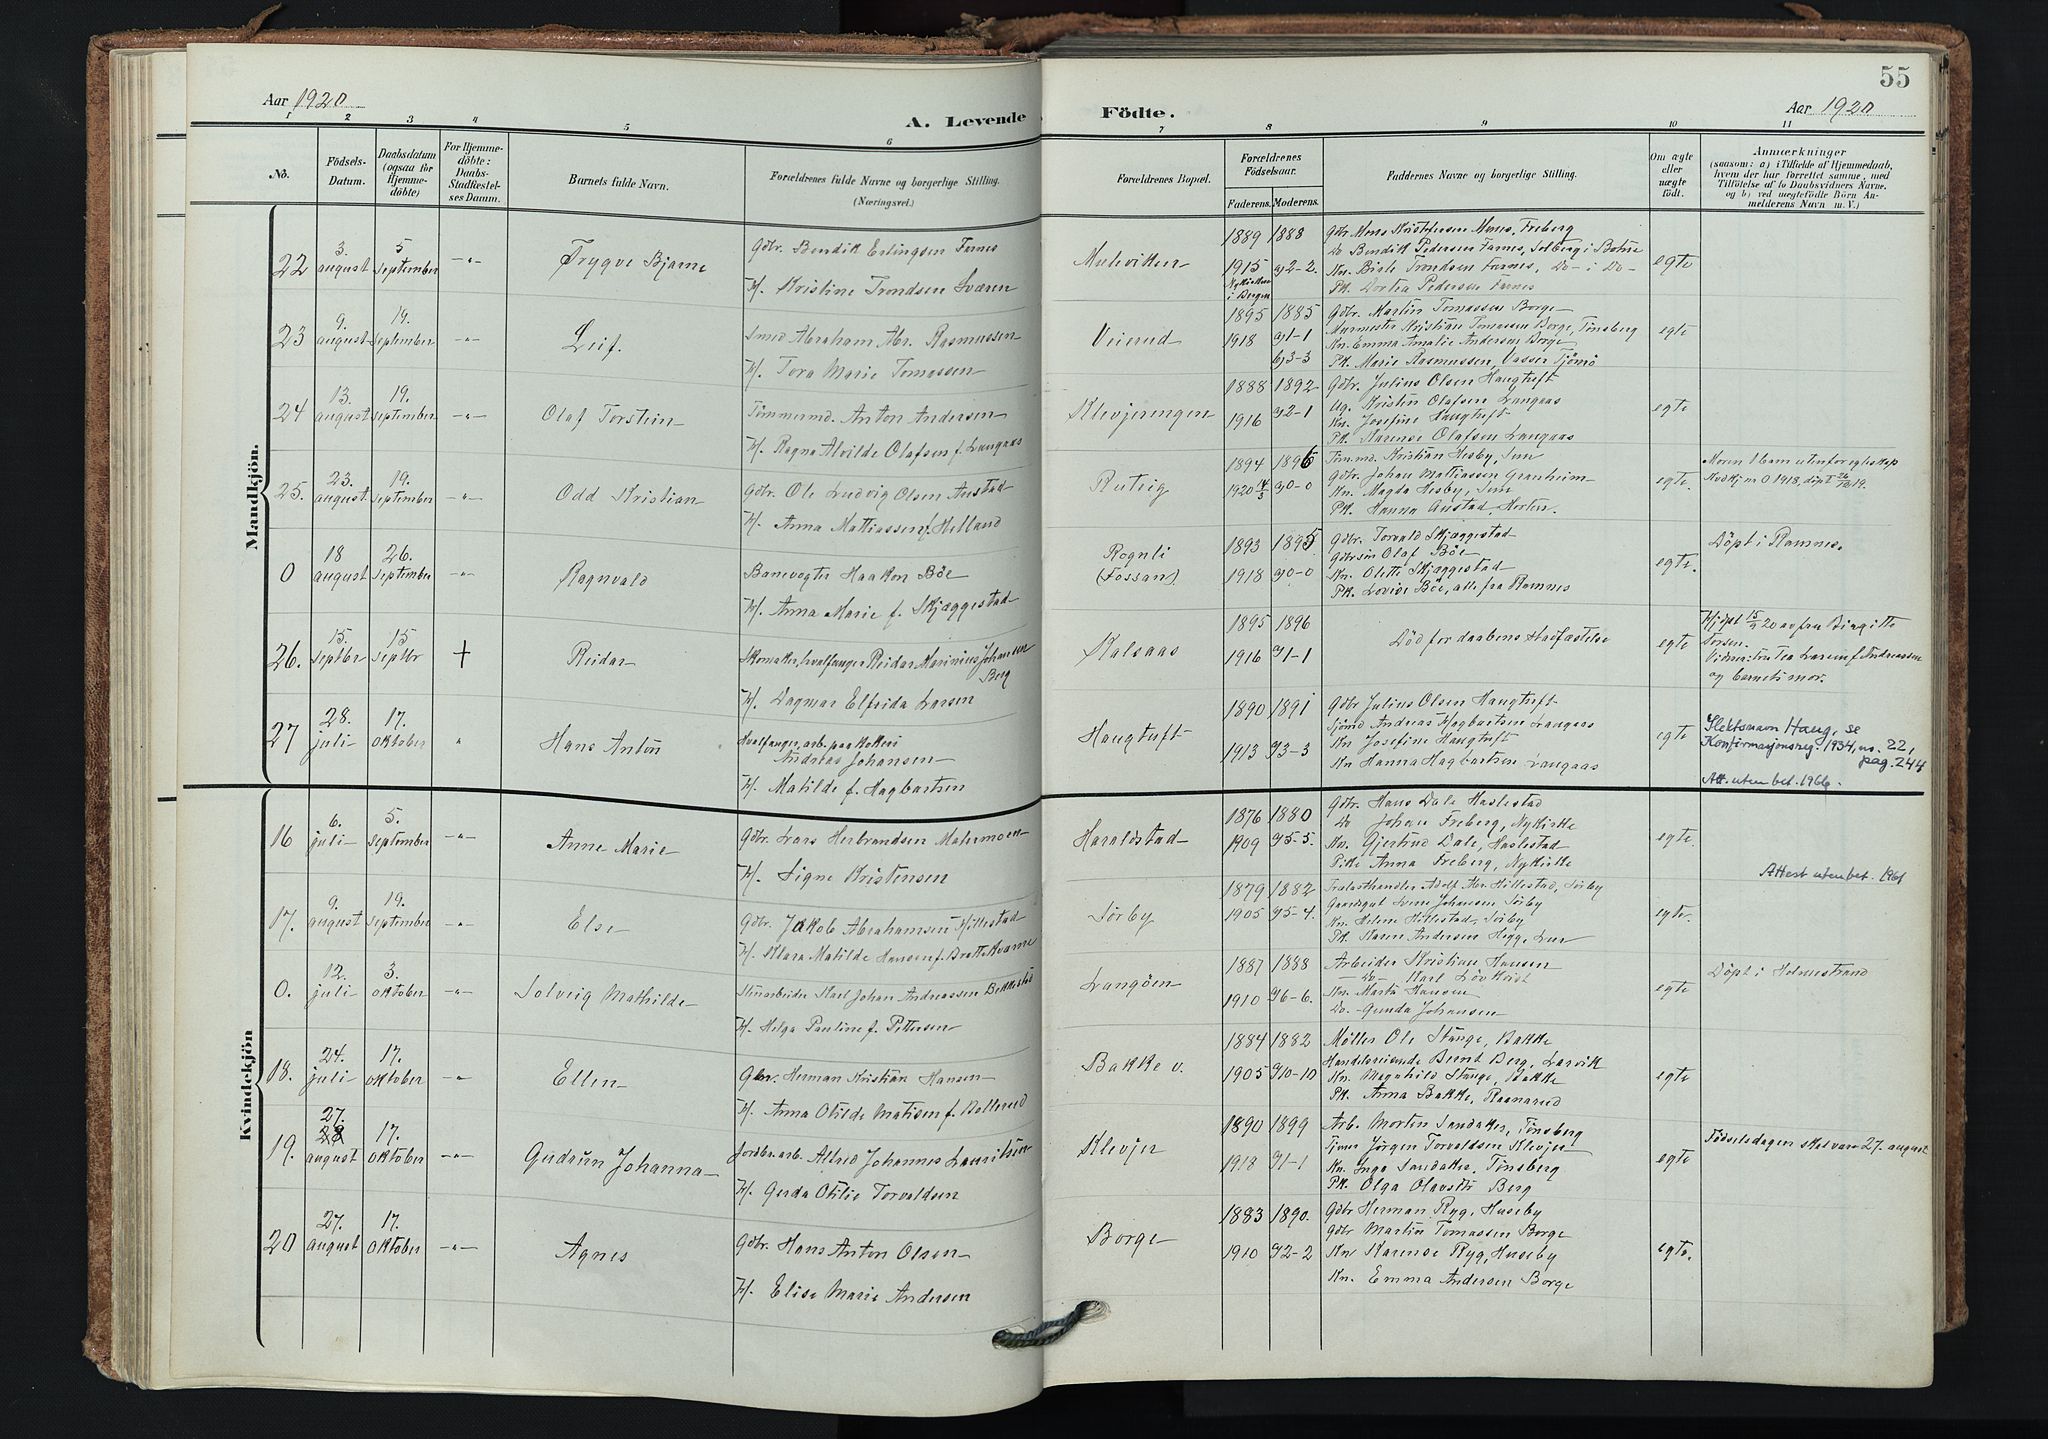 55
Aar 1920
A. Levende Födte.
Aar 1920
1 2 3 4 5 6 7 8 9 10 11
No.
Födsels-
Datum.
Daabsdatum
(ogsaa for
Hjemme-
döbte)
For Hjemme-
döbte:
Daabs-
Stadfæstel-
ses Datum.
Barnets fulde Navn.
Forældrenes fulde Navne og borgerlige Stilling.
(Næringsvei.)
Forældrenes Bopæl.
Forældrenes
Födselsaar.
Faderens. Moderens.
Faddernes Navne og borgerlige Stilling.
Om ægte
eller
uægte
födt.
Anmærkninger
(saasom: a) i Tilfælde af Hjemmedaab,
hvem der har forrettet samme, med
Tilföielse af to Daabsvidners Navne,
og b) ved uægtefödte Börn An-
melderens Navn m. V.)
Mandkjön.
22 3. august 5 september -"- Trygve Bjarne
Gdbr. Bendik Erlingsen Farnes
H. Kristine Trondsen Sværen
Mulevikken
1889 1888
1915 g2-2.
Nykirken
i Bergen
Gdbr Mons Kristofersen Mones, Freberg
Do Bendik Pedersen Farnes, Solberg i Botne
Kn. Birte Trondsen Farnes, Do - i Do -
Pk. Dortea Pedersen Farnes
egte
23 9. august 19. september -"- Leif.
Smed Abraham Abr. Rasmussen
H. Tora Marie Tomassen
Veierud
1895 1885
1918 g1-1
b3-3
Gdbr. Martin Tomassen Borge
Murmester Kristian Tomassen Borge, Tönsberg
Kn. Emma Amalie Andersen Borge
Pk. Marie Rasmussen, Vasser Tjömö
egte
24 13. august 19. september -"- Olaf Torstein
Tömmermd. Anton Andersen
H. Ragna Alvilde Olafsen f. Langaas
Klevjeringen
1888 1892
1916 g2-1
Gdbr. Julius Olsen Haugtuft
Ug. Kristin Olafsen Langaas
Kn. Josefine Haugtuft
Pk. Karense Olafsen Langaas
egte
25. 23. august 19. september -"- Odd Kristian
Gdbr. Ole Ludvig Olsen Austad
H. Anna Mattiassen f. Helland
1894 1896
1920 4/5 g0-0
Tömmd. Kristian Hesby, Sem
Gdbr. Johan Mattiassen Granheim
Kn. Magda Hesby, Sem
Pk. Hanna Austad, Horten.
egte.
0 18 august 26. september -"- Ragnvald
Banevogter Haakon Böe
H. Anna Marie f. Skjæggestad
Rognli
(Fossan)
1893 1895
1918 g0-0
Gdbr. Torvald Skjæggestad
Gdbrsön Olaf Böe
Kn. Olette Skjæggestad
Pk. Lovise Böe, alle fra Ramnes
egte.
Döpt i Ramnes.
26. 15. septbr 15 septbr + Reidar
Skomaker, hvalfanger Reidar Marinius Johansen
Berg
H. Dagmar Elfrida Larsen
Kalsaas
1895 1896
1916 g1-1
Död for daabens stadfæstelse
egte
Hjdpt 15/9 20 av fru Birgitte
Torsen.
Vidner: fru Tea Larsen f. Andreassen
og barnets mor.
27 28. juli 17. oktober " Hans Anton
Hvalfanger, arb. paa kokeri
Andreas Johansen
H. Matilde f. Hagbartsen
Haugtuft
1890 1891
1913 g3-3
Gdbr Julius Olsen Haugtuft
Sjömd Andreas Hagbartsen Langaas
Kn Josefine Haugtuft
Kn Hanna Hagbartsen Langaas
egte
Slektsnavn Haug, se
Konfirmasjonsreg. 1934, no. 22,
pag. 244
Att. uten bet. 1966.
Kvindekjön
16 6. juli 5. september -"- Anne Marie
Gdbr. Lars Herbrandsen Mælumoen
H. Signe Kristensen
Haraldstad
1876 1880
1909 g5-5.
Gdbr. Hans Dale Haslestad
Do Johan Freberg, Nykirke
Kn. Gjertrud Dale, Haslestad
Pike Anna Freberg, Nykirke
egte.
Attest uten bet. 1961
17. 9. august 19. september -"- Else
Gdbr. Jakob Abrahamsen Hillestad
H. Klara Matilde Hansen f. Brattekvamme
Sörby
1879 1882
1905 g5-4.
Trælasthandler Adolf Abr. Hillestad, Sörby
Gaardsgut Johansen Sörby
Kn. Helene Hillestad, Sörby
Pk. Karen Andersen Hegg, Lur
egte.
0. 12. juli 3. oktober -"- Solveig Mathilde
Stenarbeider Karl Johan Andreassen Bekkestø
H. Helga Pauline f. Pettersen
Langöen
1887 1888
1910 g6-6.
Arbeider Kristian Hansen
-Do- Karl Lövkvist
Kn. Marta Hansen
Do. - Gunda Johansen
egte
Döpt i Holmestrand
18. 24. juli 17. oktober -"- Ellen
Gbr. Herman Kristian Hansen
H. Anna Otilde Matisen f. Bollerud
Bakke v.
1884 1882
1905 g10-10
Møller Ole Stange, Bakke
Handelsreisende Bernt Berg, Larvik
Kn. Magnhild Stange, Bakke
Pk. Anna Bakke, Ragnarud
egte
19. 27. 28 august 17. oktober -"- Gudrun Johanna
Jordbr.arb. Alfred Johannes Lauritsen
H. Gerda Otilie Torvaldsen
Klevjer
1890 1899
1918 g1-1
Arb. Morten Sandaker, Tönsberg
Tjener Jörgen Torvaldsen Klevjer
Kn. Inga Sandaker, Tönsberg
Pk. Olga Olavster Berg
egte
Födselsdagen skal være 27. august
20 27. august 17. oktober -"- Agnes
Gdbr. Hans Anton Olsen
H. Elise Marie Andersen
Borge
1883 1890.
1910 g2-2
Gdbr Herman Ryg, Huseby
Gdbr Martin Tomassen Borge
Kn Karense Ryg, Huseby
Kn. Emma Andersen Borge
egte.